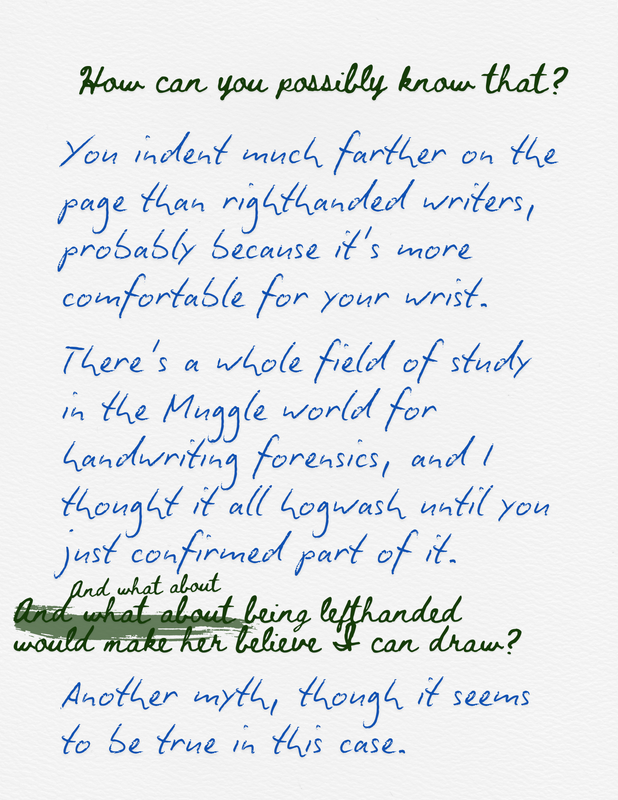 How can you possibly know that?
You indent much farther on the
page than righthanded writers,
probably because it's more
comfortable for your wrist.
There's a whole field of study
in the Muggle world for
handwriting forensics, and I
thought it all hogwash until you
just confirmed part of it.
And what about
And what about being lefthanded
would make her believe I can draw?
Another myth, though it seems
to be true in this case.